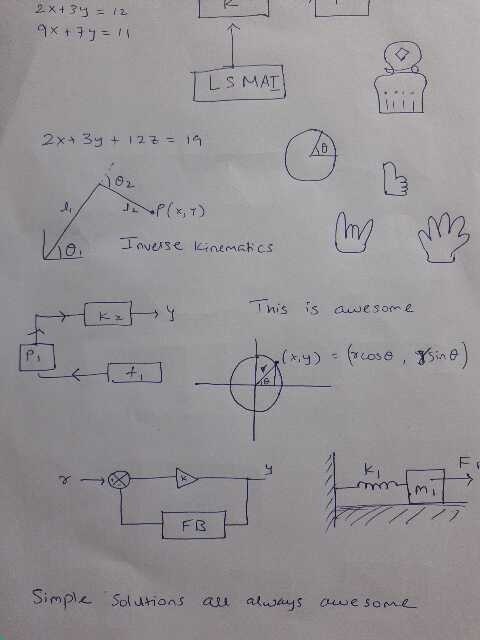 2x+3y=12
9x+7y=11
K
LSMAI
2x+3y+12z=19
θ
θ2
l1
l2
P(x,y)
θ1
Inverse kinematics
K2
y
This is awesome
P1
t1
r
θ
(x,y) = (rcosθ, rsinθ)
r
K
y
FB
K1
m1
F
Simple solutions are always awesome